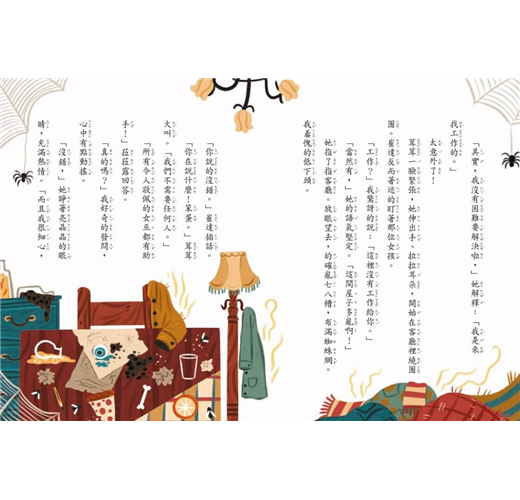 「其實，我沒有困難要解決啦，」她解釋：「我是來
找工作的。」
太意外了！
茸茸一臉緊張，她伸出手、拉拉耳朵，開始在客廳裡繞圈
圈。崔達反而著迷的盯著那位女孩。
「工作？」我驚訝的說：「這裡沒有工作給你。」
「當然有，」她的語氣堅定。「這間屋子多亂啊！」
她指了指客廳。放眼望去，的確亂七八糟，布滿蜘蛛網。
我羞愧的低下頭。
「你說的沒錯。」崔達插話。
「你在說什麼！笨蛋。」茸茸
大叫。「我們不需要任何人。」
「所有令人敬佩的女巫都有助
手！」菈菈露回答。
「真的嗎？」我好奇的發問，
心中有點動搖。
「沒錯，」她睜著亮晶晶的眼
睛，充滿熱情。「而且我很細心，